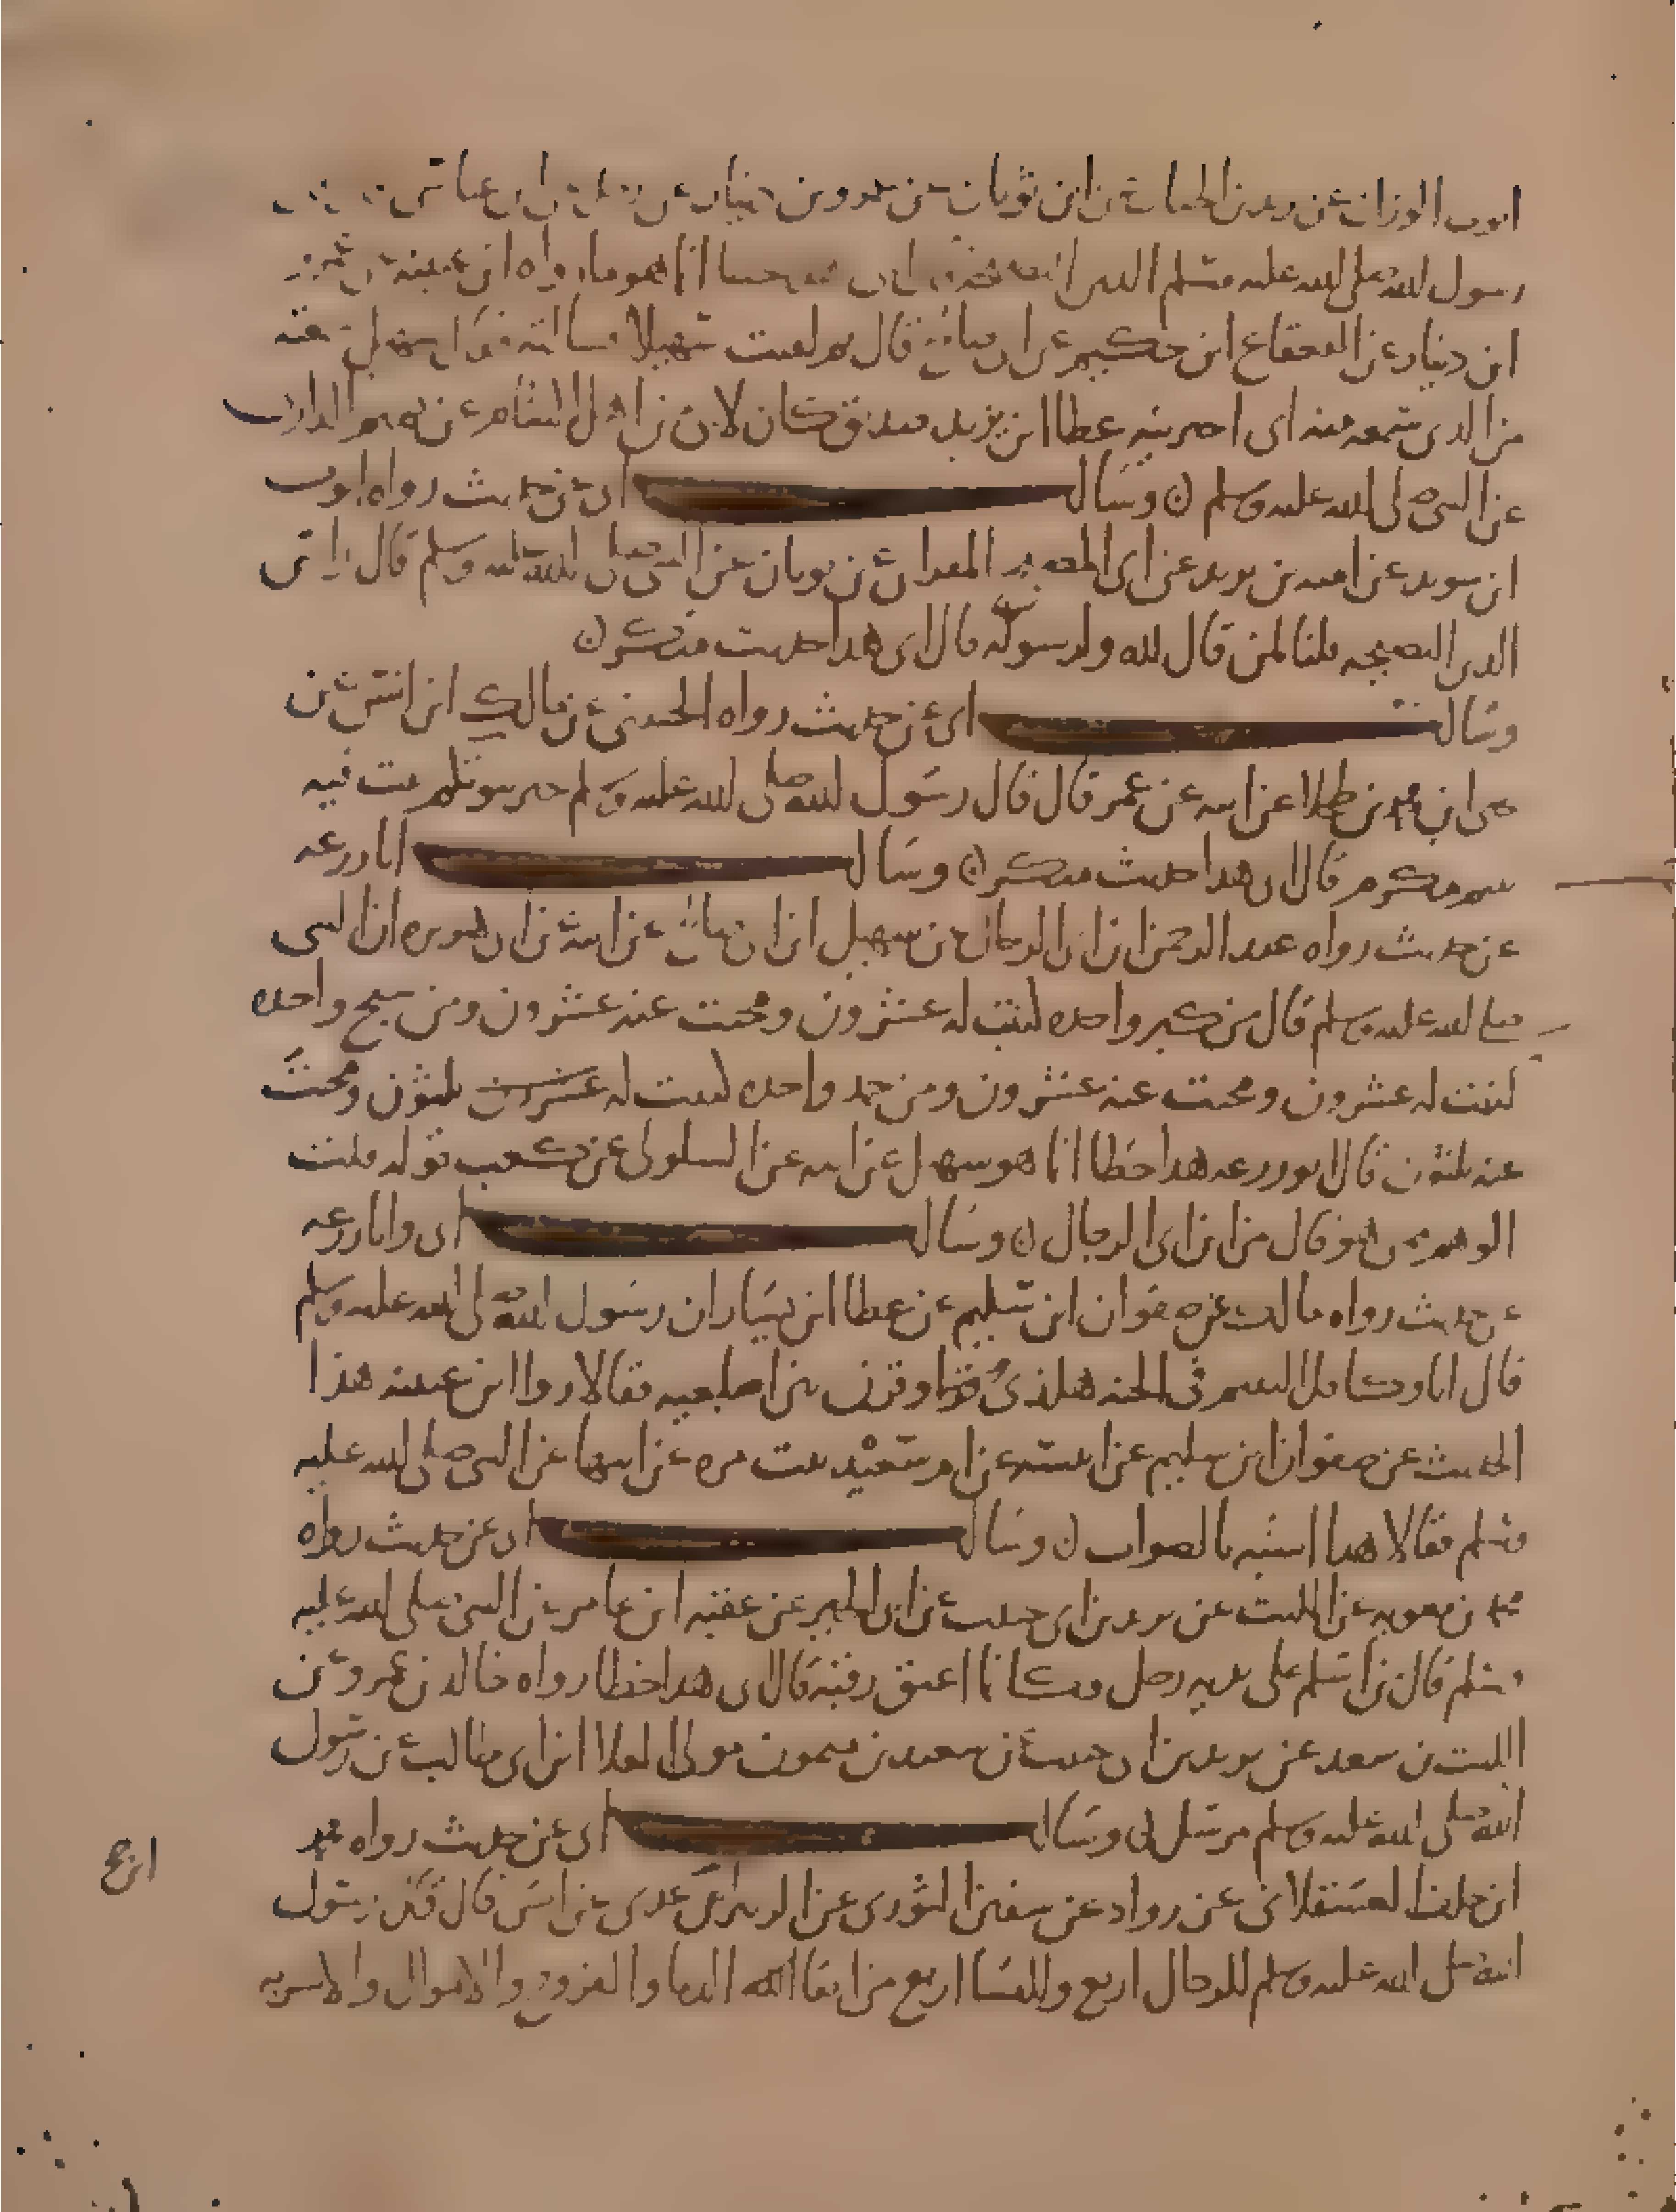 ايوب الوزان عن زيد بن الحباب عن ابن ثوبان عن عمرو بن دينار عن
رسول الله صلى الله عليه وسلم الدين النصيحة انما هو ما رواه ابن عيينة عن عمرو
ابن دينار عن القعقاع ابن حكيم عن ابي صالح قال ثم لقيت سهيلا فسالته
من الذي سمعه منه ابي اخبرنيه عطا ابن يزيد صديق كان لابي من اهل الشام عن تميم الداري
عن النبي صلى الله عليه وسلم ن وسالت ابي عن حديث رواه ايوب
ابن سويد عن اميه بن يزيد عن ابي المصبح المقراي عن ثوبان عن النبي صلى الله عليه وسلم قال راس
الدين النصيحه قلنا لمن قال لله ولرسوله قال ابي هذا حديث منكر ن
وسالت ابي عن حديث رواه الحنيني عن مالك ابن انس عن
يحيى ابن محمد بن طحلا عن ابيه عن عمر قال قال رسول الله صلى الله عليه وسلم خير بيوتكم بيت فيه
يتيم مكرم قال ابي هذا حديث منكر ن وسالت ابا زرعه
عن حديث رواه عبد الرحمن ابن ابي الرجال عن سهيل ابن ابي صالح عن ابيه عن ابي هريره ان النبي
صلى الله عليه وسلم قال من كبر واحده كتبت له عشرون ومحيت عنه عشرون ومن سبح واحده
كتبت له عشرون ومحيت عنه عشرون ومن حمد واحده كتبت له عشرون ثلثون ومحيت
عنه ثلثون قال ابو زرعه هذا خطا انما هو سهيل عن ابيه عن السلولي عن كعب قوله قلت
الوهم ممن هو قال من ابن ابي الرجال ن وسالت ابي وابا زرعه
عن حديث رواه مالك عن صفوان ابن سليم عن عطا ابن يسار ان رسول الله صلى الله عليه وسلم
قال انا وكافل اليتيم في الجنه هكذى وقرن بين اصابعيه فقالا روا ابن عيينه هذا
الحديث عن صفوان ابن سليم عن انيسه عن ام سعيد بنت مره عن ابيها عن النبي صلى الله عليه
وسلم فقالا هذا اشبه بالصواب ن وسالت ابي عن حديث رواه
محمد بن معويه عن الليث عن يزيد بن ابي حبيب عن ابي الخير عن عقبه ابن عامر عن النبي صلى الله عليه
وسلم قال من اسلم على يديه رجل فكانما اعتق رقبة قال ابي هذا خطا رواه خالد بن عمرو عن
الليث بن سعد عن يزيد بن ابي حبيب عن سعيد بن ميمون مولى العلا ابن ابي طالب عن رسول
الله صلى الله عليه وسلم مرسل ن وسالت ابي عن حديث رواه محمد
ابن خلف العسقلاني عن رواد عن سفين الثوري عن الزبير ابن عدي عن انس قال قال رسول
الله صلى الله عليه وسلم للرجال اربع وللنسا اربع من ابقا الله الدما والفروج والاموال والاشربه